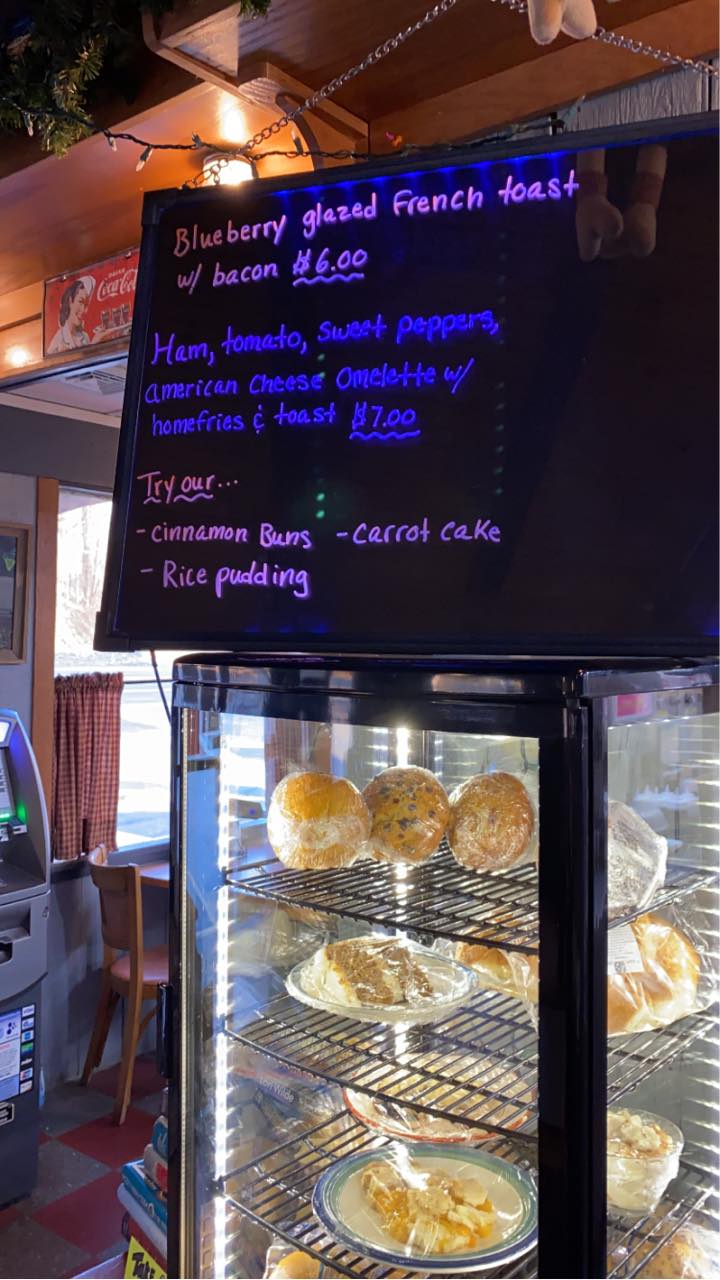 Blueberry glazed French toast
w/ bacon $6.00
Ham, tomato, sweet peppers,
american cheese Omelette w/
homefries & toast $7.00
Try our...
- cinnamon Buns - Carrot cake
- Rice pudding
DRINK
Coca-Cola